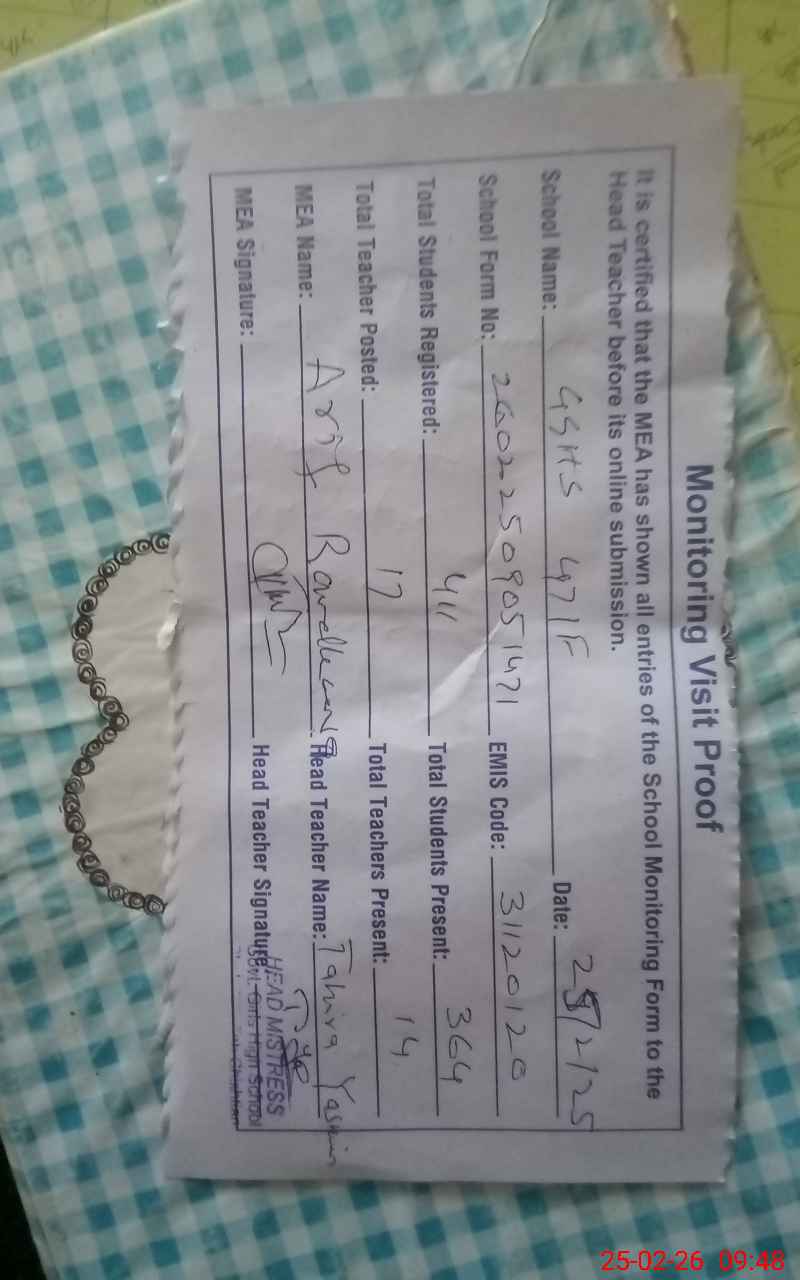 Monitoring Visit Proof
It is certified that the MEA has shown all entries of the School Monitoring Form to the
Head Teacher before its online submission.
School Name: GGHS 47/F Date: 25/2/25
School Form No: 26022509051471 EMIS Code: 31120120
Total Students Registered: 411 Total Students Present: 364
Total Teacher Posted: 17 Total Teachers Present: 14
MEA Name: Arif Head Teacher Name: Tahira Yasmin
MEA Signature: Head Teacher Signature
HEAD MISTRESS
Govt. Girls High School
25-02-26 09:48